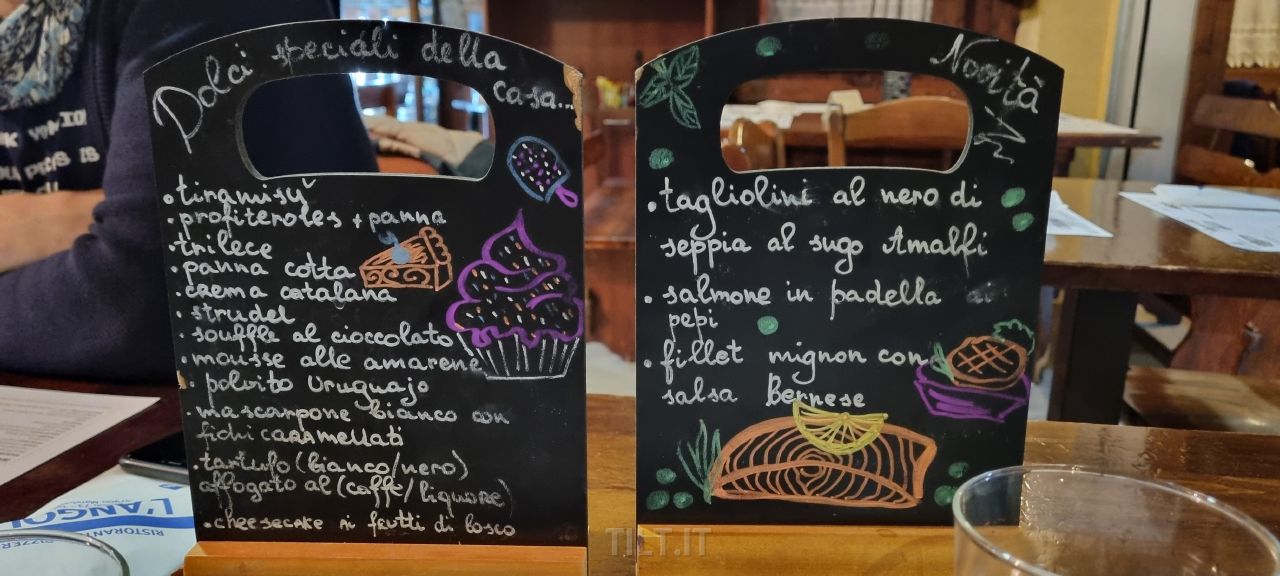 Dolci speciali della
casa...
• tiramisù
• profiteroles + panna
• trilece
• panna cotta
• crema catalana
• strudel
• souffle al cioccolato
• mousse alle amarene
• polvito Uruguajo
• mascarpone bianco con
fichi caramellati
• tartufo (bianco/nero)
affogato al (caffe/liquore)
• cheesecake ai frutti di bosco
Novità
• tagliolini al nero di
seppia al sugo Amalfi
• salmone in padella ai
pepi
• fillet mignon con
salsa Bernese
L'ANGOL
RISTORANT
PIZZER
TILT.IT